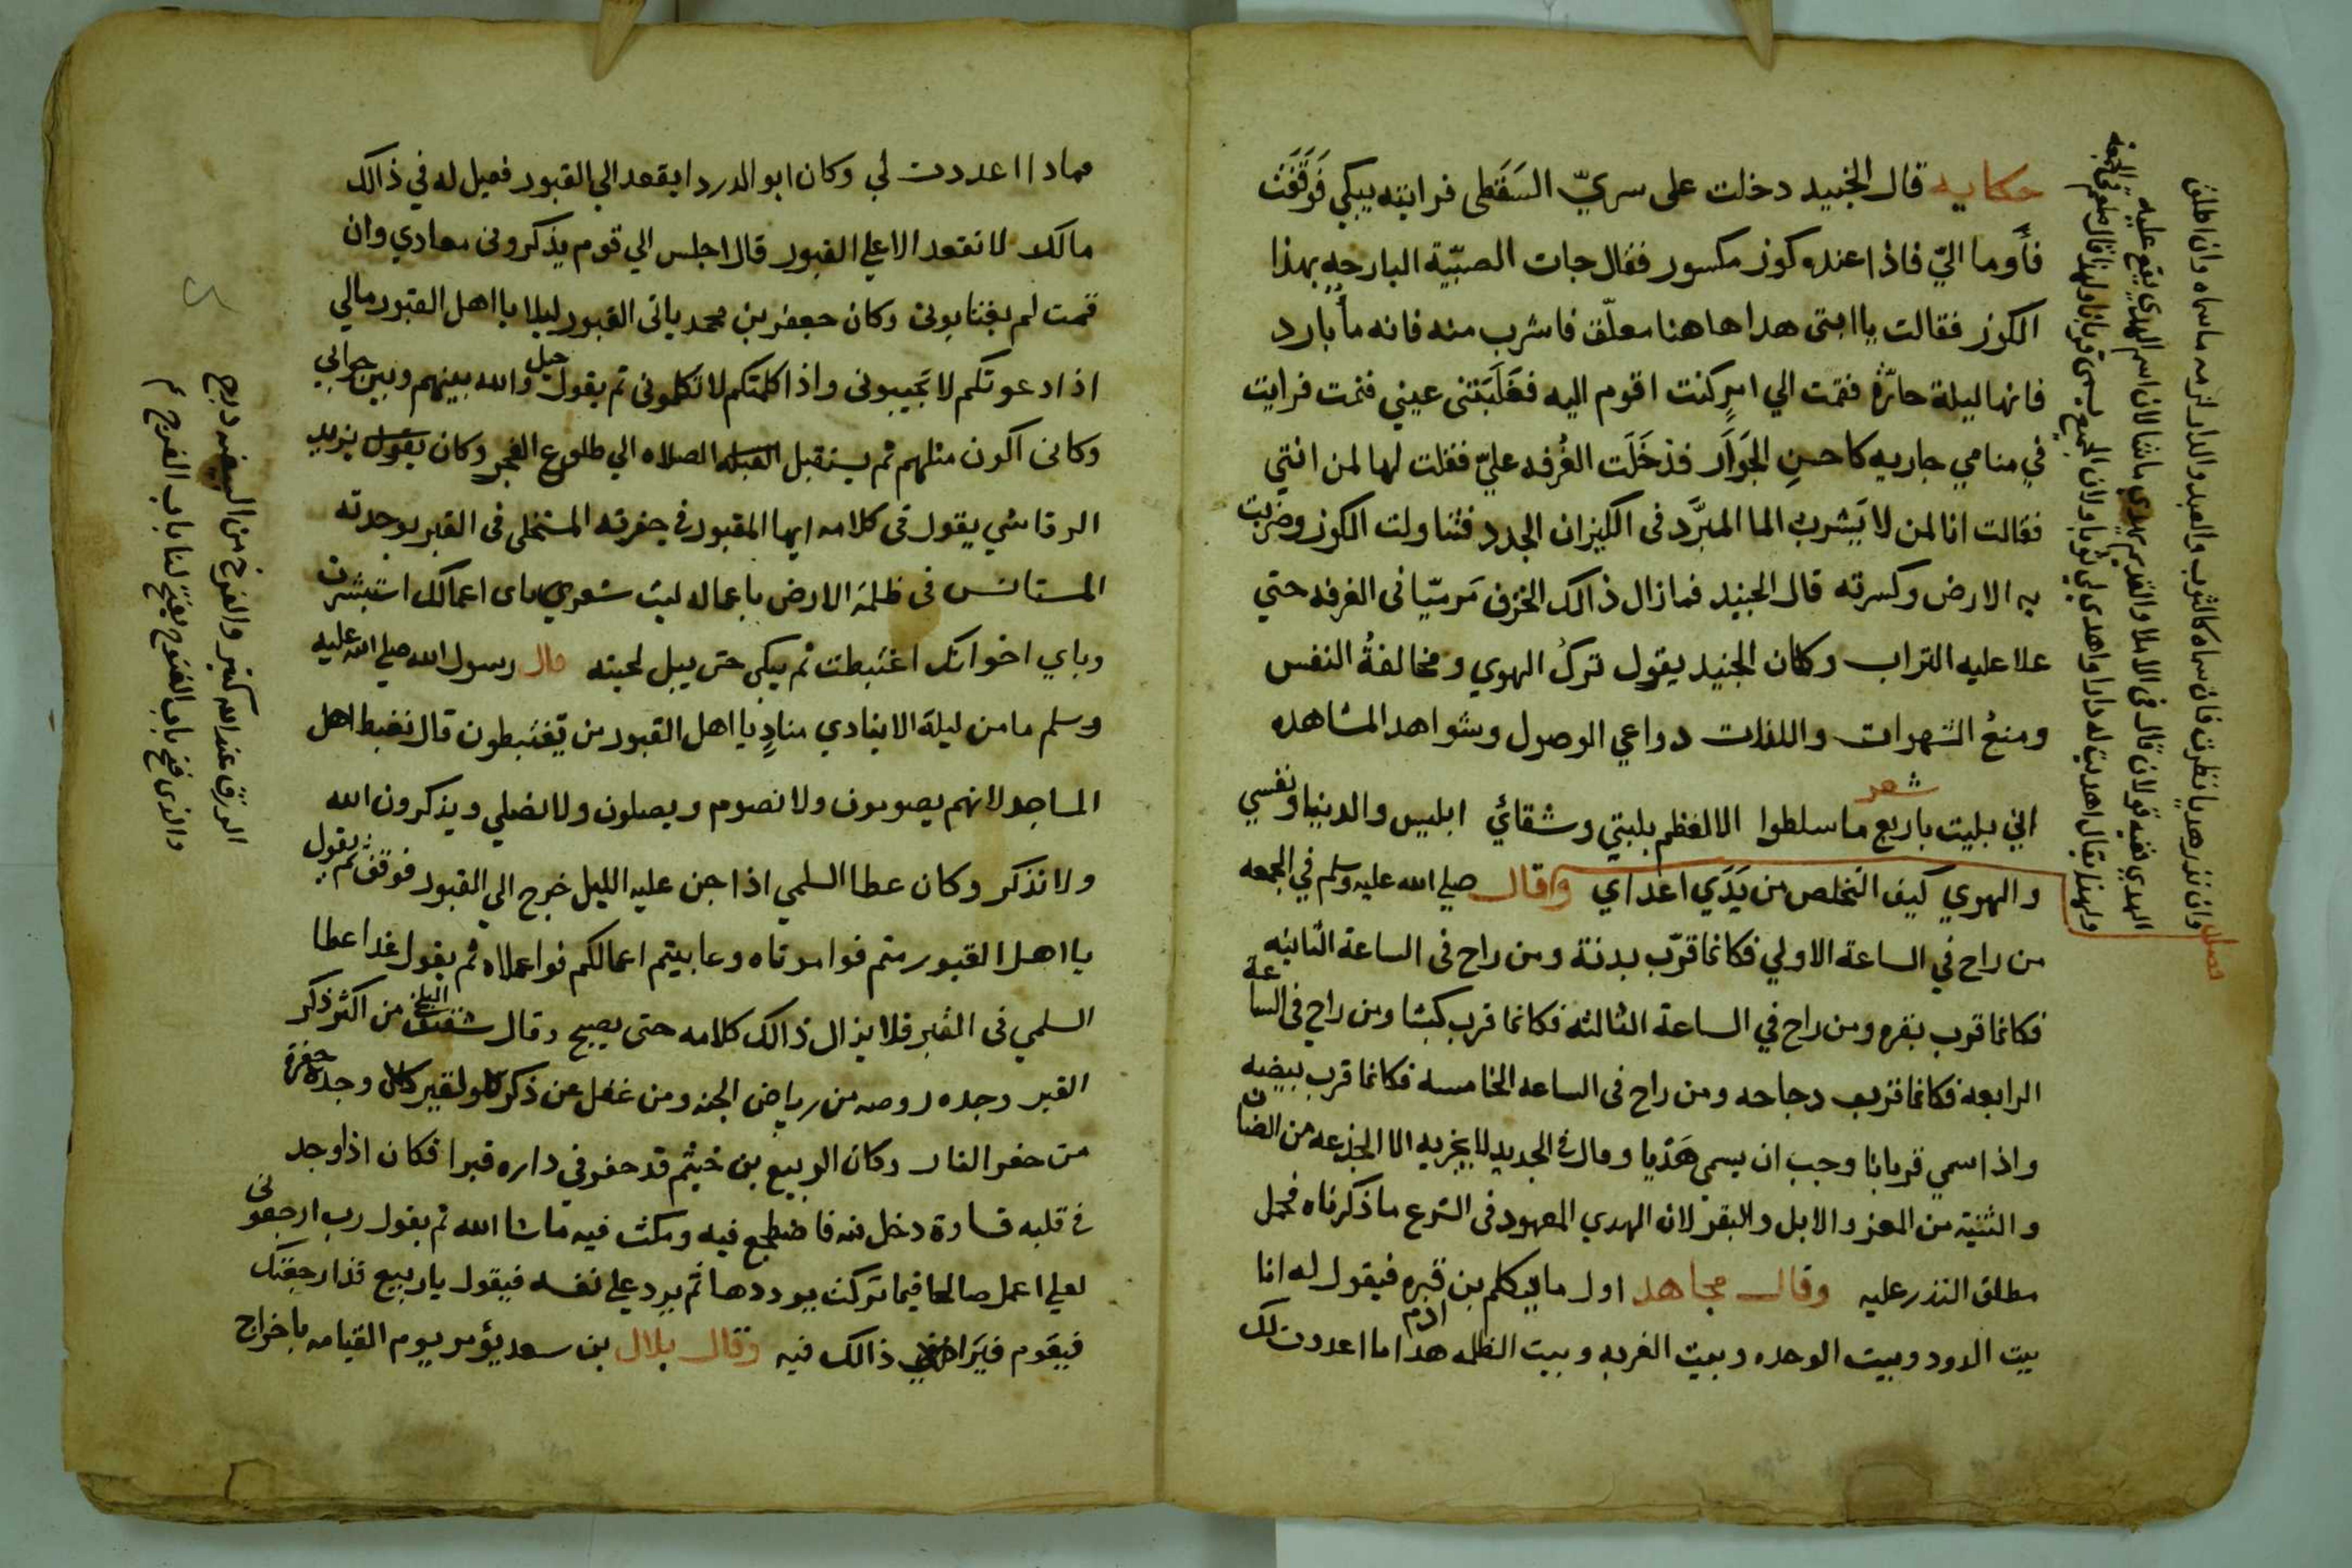 حكايه قال الجنيد دخلت على سريّ السَقَطى فرايته يبكي فَوَقَفَت
فأوما اليّ فاذا عنده كوز مكسور فقال جات الصبّية البارحه بهذا
الكوز فقالت يا ابتى هدا هاهنا معلّق فاشرب منه فانه مأ بارد
فانها ليلة حارّة فقمت الي امرٍ كنت اقوم اليه فغَلَبَتنى عيني فنمت فرايت
في منامي جاريه كاحسنِ الجَوَار قد خَلَت الغُرفه عليّ فقلت لها لمن انتي
فقالت انا لمن لا يَشرب الما المبرَّد فى الكيزان الجدد فتناولت الكوز وضربت
به الارض وكسرته قال الجنيد فمازال ذالك الخزف مَرميّا فى الغرفه حتي
علا عليه التراب وكان الجنيد يقول تركُ الهوي ومخالفةُ النفس
ومنعُ الشهوات واللذات دواعي الوصول وشواهد المشاهده
شعر
اني بليت باربع ما سلطوا الا لعظم بليتي وشقائي ابليس والدنيا ونفسي
والهوي كيف التخلص من يَدَي اعداي وقال صلي الله عليه وسلم في الجمعه
من راح في الساعة الاولي فكانما قرّب بدنة ومن راح فى الساعة الثانيه
فكانما قرب بقره ومن راح في الساعة الثالثه فكانما قرب كبشا ومن راح فى الساعة
الرابعه فكانما قرب دجاجه ومن راح فى الساعه الخامسه فكانما قرب بيضه
واذا سمي قربانا وجب ان يسمى هَدْيا وقال في الجديد لا يجزيه الا الجذعه من الضان
والثنيّة من المعز والابل والبقر لان الهدي المعهود فى الشرع ما ذكرناه فحمل
مطلق النذر عليه وقال مجاهد اول ما يكلم بن ادم قبره فيقول له انا
بيت الدود وبيت الوحده وبيت الغربه وبيت الظلمه هدا ما اعددت لك
فصل وان نذر هديا نظرت فان سماه كالثوب والعبد والدار لزمه ما سماه وان اطلق
الهدي ففيه قولان قال فى الاملا والقديم يهدي ماشا لان اسم الهدي يقع عليه
ولهذا يقال اهديت له دارا واهدي لي ثوبا ولان الجميع يسمى قربانا ولهذا قال صلعم فى الجمعه
فماذا اعددت لي وكان ابو الدردا يقعد الي القبور فقيل له في ذالك
مالك لا تقعد الا علي القبور قال اجلس الي قوم يذكرونى معادي وان
قمت لم يغتابونى وكان جعفر بن محمد ياتى القبور ليلا يا اهل القبور مالي
اذا دعوتكم لا تجيبونى واذا كلمتكم لا تكلمونى ثم يقول حيل والله بينهم وبين جوابي
وكانى اكون مثلهم ثم يستقبل القبله الصلاه الي طلوع الفجر وكان يقول يزيد
الرقاشي يقول فى كلامه ايها المقبور في حفرته المتخلى فى القبر بوحدته
المستانس فى ظلمة الارض باعماله ليت شعري باى اعمالك استبشرت
وباي اخوانك اغتبطت ثم يبكى حتى يبل لحيته قال رسول الله صلي الله عليه
وسلم ما من ليلة الا ينادي منادٍ يا اهل القبور من تغتبطون قال نغبط اهل
المساجد لانهم يصومون ولا نصوم ويصلون ولا نصلي ويذكرون الله
ولا نذكر وكان عطا السلمي اذا جن عليه الليل خرج الي القبور فوقف ثم يقول
يا اهل القبور متم فوا موتاه وعاينتم اعمالكم فوا عملاه ثم يقول غدا عطا
السلمي فى القبر فلا يزال ذالك كلامه حتى يصبح وقال شقيق البلخي من اكثر ذكر
القبر وجده روضه من رياض الجنه ومن غفل عن ذكر وجده حفرة
من حفر النار وكان الربيع بن خيثم قد حفر في داره قبرا فكان اذا وجد
في قلبه قساوة دخل فيه فاضطجع فيه ومكث فيه ماشا الله ثم يقول رب ارجعونى
لعلي اعمل صالحا فيما تركت يرددها ثم يرد علي نفسه فيقول يا ربيع قد ارجعتك
فيقوم فيَرا ذالك فيه وقال بلال بن سعد يؤمر يوم القيامه باخراج
الورق عند الله كتير والفرج من الضيقه درج
والذى فتح باب الفتوح يفتح لنا باب الفرج